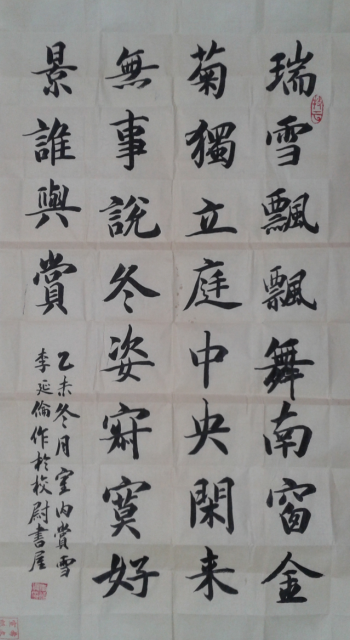 瑞雪飄飄舞南窗金
菊獨立庭中央閑来
無事説冬姿寂寞好
景誰與賞
乙未冬月室内賞雪
李延倫作於校尉書屋